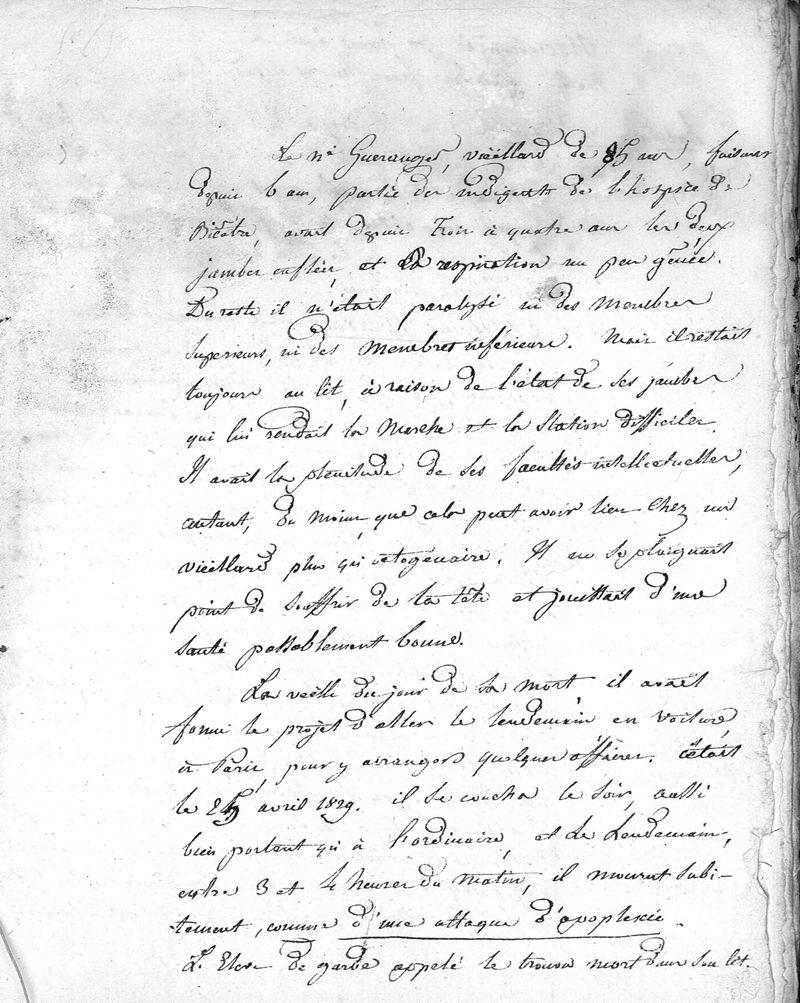 Le né Guéranger, vieillard de 85 ans, faisant
depuis 6 ans, partie des indigents de l'hospice de
Bicêtre, avait depuis trois à quatre ans les deux
jambes enflées, et la respiration un peu gênée.
Du reste il n'était paralysé ni des membres
superieurs, ni des membres inférieurs. Mais il restait
toujours au lit, à raison de l'état de ses jambes
qui lui rendait la marche et la station difficiles.
Il avait la plénitude de ses facultés intellectuelles,
autant, du moins, que cela peut avoir lieu chez un
vieillard plus qu'octogénaire. Il ne se plaignait
point de souffrir de la tête et jouissait d'une
santé passablement bonne.
La veille du jour de sa mort il avait
formé le projet d'aller le lendemain en voiture
à Paris, pour y arranger quelques affaires. c'était
le 25 avril 1829. il se coucha le soir, aussi
bien portant qu'à l'ordinaire, et le lendemain,
entre 3 et 4 heures du matin, il mourut subi-
tement, comme d'une attaque d'apoplexie.
L'Eleve de garde appelé le trouva mort dans son lit.